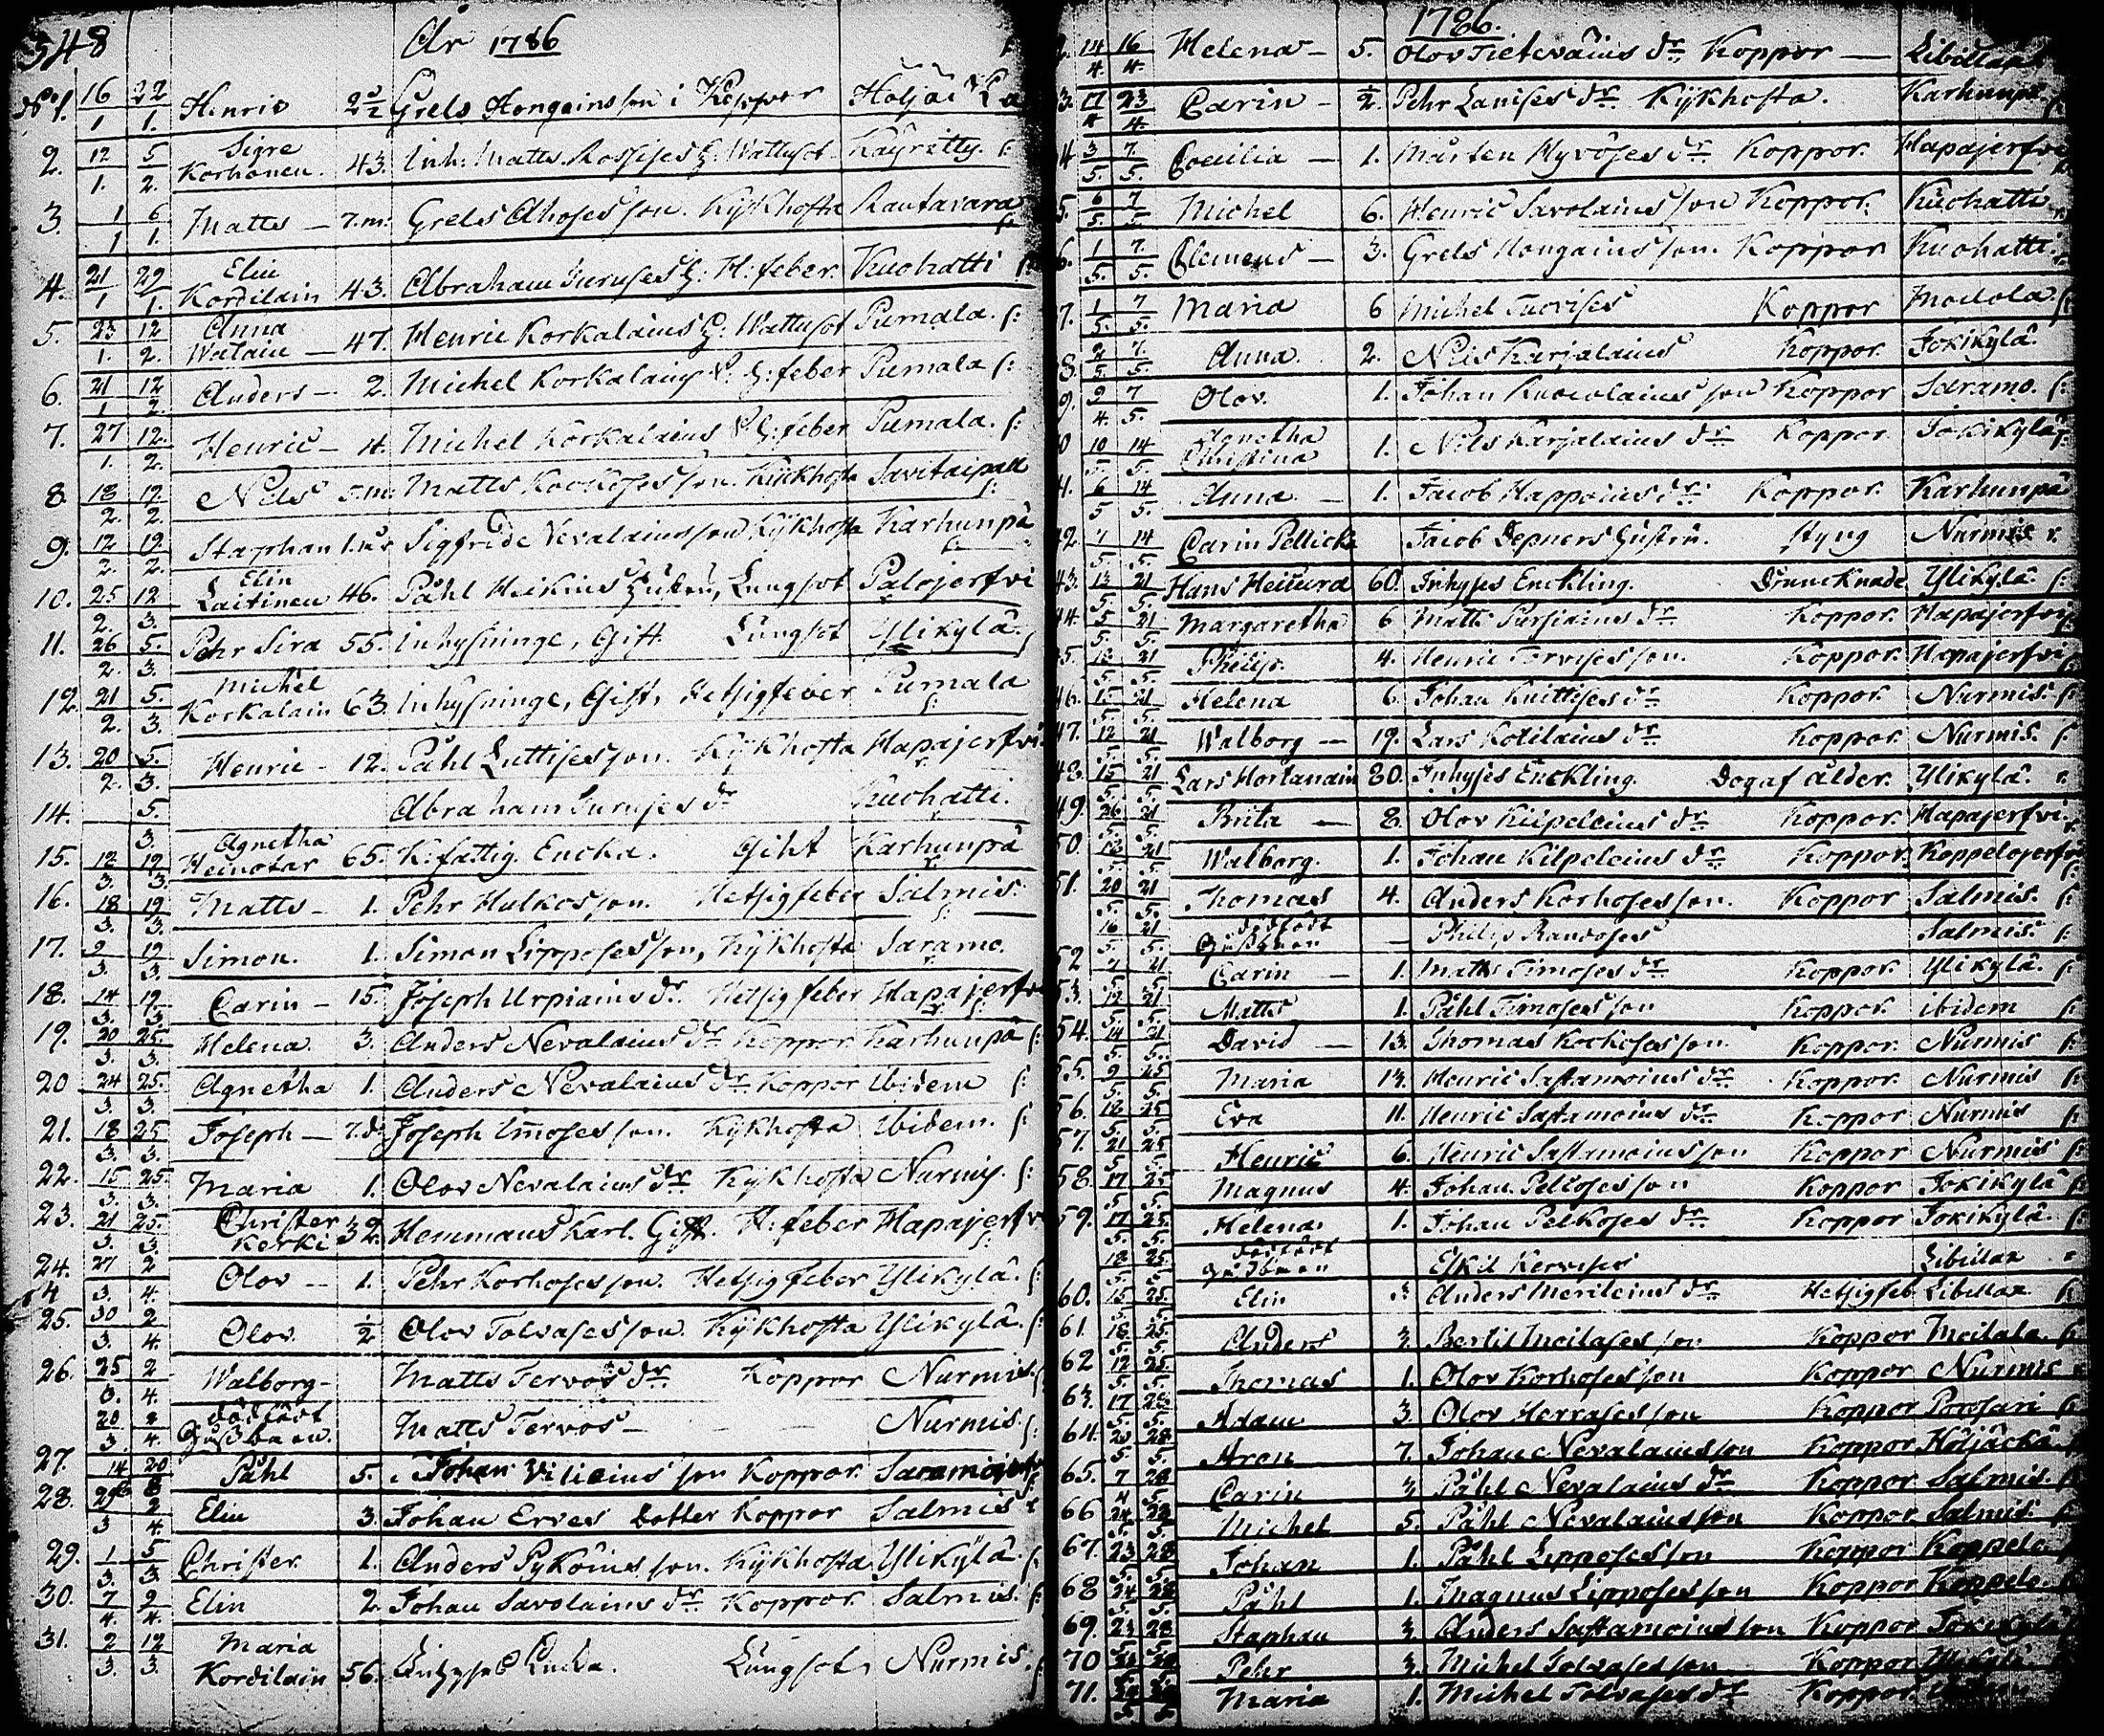 348 År 1786
No 1. 16/1 22/1. Henric 2½ Grels Hongainsson i Koppor Höljäckä
2. 12/1. 5/2. Sigre Korhonen. 43. Inh. Matts Rossises h. Wattusot Käyritty. s:
3. 1/1 6/1. Matts — 7.m. Grels Ahoses son. Kijkhosta Rautavara s:
4. 21/1 29/1. Elin Kordilain 43. Abraham Turuses h. H:feber Kuohatti s:
5. 23/1. 12/2. Anna Watain — 47. Henric Korkalains h. Wattusot Pumala. s:
6. 21/1 12/2. Anders — 2. Michel Korkalains S. H:feber Pumala s:
7. 27/1. 12./2. Henric — 4. Michel Korkalains S H:feber Pumala. s:
8. 18/2. 19./2. Nils 5.m. Matts Korkoses son. Kijkhosta Savitaipall s:
9. 12/2. 19/2. Staphan Sigfrid Nevalains son Kijkhosta Karhunpä s:
10. 25/2. 12/3. Elin Laitinen 46. Påhl Heikins hustru, Lungsot Palojerfvi
11. 26/2. 5./3. Pehr Sira 55. Inhysinge, Gift Lungsot Ylikylä. s:
12. 21/2. 5./3. Michel Korkalain 63. Inhysinge, Gift, Hetsigfeber Pumala s:
13. 20/2. 5./3. Henric — 12. Påhl Luttises son. Kijkhosta Hapajerfvi
14. 5./3. Abraham Turuses dr Kuohatti.
15. 12/3. 19/3. Agnetha Heinotar 65. K:fattig Encka. Gikt Karhunpä
16. 18/3. 19/3. Matts — 1. Pehr Hulkos son. Hetsigfeber Salmis. s:
17. 9/3. 19/3. Simon. 1. Simon Lipposes son, Kijkhosta Saramo.
18. 14/3. 19./3. Carin — 15. Joseph Urpiains dr. Hetsigfeber Hapajerfvi
19. 20/3. 25./3. Helena 3. Anders Nevalains dr Koppor Karhunpä s:
20 24/3. 25./3. Agnetha 1. Anders Nevalains dr. Koppor Ibidem s:
21. 18/3. 25/3. Joseph — 7.d. Joseph Timoses son. Kijkhosta Ibidem. s:
22. 15/3. 25./3. Maria 1. Olov Nevalains dr. Kijkhosta Nurmis. s:
23. 21/3. 25./3. Christer Kerki 32. Hemmans Karl. Gift. H:feber Hapajerfvi s:
24. 27/3. 2/4. Olov — 1. Pehr Korhoses son. Hetsigfeber Ylikylä. s:
25. 30/3. 2/4. Olov. ½ Olov Tolvases son. Kijkhosta Ylikylä. s:
26. 25/3. 2/4. Walborg — Matts Tervos dr. Koppor Nurmis. s:
20/3. 2/4. dödfödt Gossbarn. Matts Tervos — Nurmis. s:
27. 14 20 Påhl 5. Johan Vilicins son Koppor Saramo
28. 29/3 2/4. Elin 3. Johan Erves dotter Koppor Salmis
29. 1/3. 5/3 Christer. 1. Anders Pyköins son. Kijkhosta Ylikylä. s:
30. 7/4. 9/4. Elin 2. Johan Savolains dr. Koppor. Salmis. s:
31. 2/3. 12/3. Maria Kordilain 56. Inhyses Encka. Lungsot, Nurmis. s:
1786.
14/4. 16/4. Helena — 5. Olov Tietevains dr. Koppor — Libillax
3. 17/4 23/4. Carin — ½. Pehr Lanises dr. Kijkhosta. Karhunpä s:
4 3/5. 7/5. Coecilia — 1. Mårten Hyvöses dr. Koppor. Hapajerfvi
5. 6/5. 7/5. Michel 6. Henric Savolains son Koppor. Kuohatti
6. 1/5. 7./5. Clemens — 3. Grels Hongains son. Koppor Kuohatti.
7. 1/5. 7/5. Maria 6 Michel Tuovises Koppor Moilola. s:
8. 2/5. 7./5. Anna. 2. Nils Karjalains Koppor. Jokikylä.
9. 9/4. 7/5. Olov. 1. Johan Ruocolains son Koppor Saramo. s:
0 10/5. 14/5. Agnetha Christina 1. Nils Karjalains dr Koppor. Jokikylä s:
1. 6/5 14/5. Anna — 1. Jacob Happoins dr. Koppor. Karhunpä
2. 7/5. 14/5. Carin Pellicka Jacob Depners hustru. styng Nurmis r.
43. 13/5. 21/5. Hans Heitura 60. Inhyses Enckling. Drunknade Ylikylä. s:
44. 5/5. 21/5. Margaretha 6 Matts Pursiains dr Koppor. Hapajerfvi s:
45. 12/5. 21/5. Philip. 4. Henric Torvises son. Koppor. Hapajerfvi
46. 15/5. 21/5. Helena 6. Johan Knittises dr Koppor. Nurmis. s:
47. 12/5. 21/5. Walborg — 19. Lars Kotilains dr Koppor. Nurmis. s:
48. 15/5. 21/5. Lars Hortanain 80. Inhyses Enckling. Dog af ålder. Ylikylä. r.
49. 26/5. 21/5. Brita — 8. Olov Kilpeleins dr Koppor. Hapajerfvi. r.
50. 12/5. 21/5. Walborg. 1. Johan Kilpeleins dr Koppor. Koppelojerfvi
51. 20/5. 21/5. Thomas 4. Anders Korhoses son. Koppor Salmis. s:
16/5. 21/5. dödfödt Gossbarn — Philip Randoses Salmis. s:
52 7/5. 21/5. Carin — 1. Matts Timoses dr Koppor. Ylikylä. s:
53. 12/5. 21/5. Matts 1. Påhl Timoses son Koppor. ibidem s:
54. 14/5. 21/5. David — 13. Thomas Korkoses son. Koppor. Nurmis s:
55. 9/5. 25/5. Maria 13. Henric Sastamoins dr Koppor. Nurmis s:
56. 12/5. 25/5. Eva 11. Henric Sastamoins dr Koppor Nurmis s:
57. 21/5. 25/5. Henric 6. Henric Sastamoins son Koppor Nurmis s:
58. 17/5. 25/5. Magnus 4. Johan Pelkoses son Koppor Jokikylä s:
59. 17/5. 25/5. Helena 1. Johan Pelkoses dr Koppor Jokikylä. s:
18/5. 25/5. dödfödt Gossbarn Eskil Kervises Libillax
60. 15/5. 25/5. Elin 3 Anders Merileins dr Hetsigfeb Libillax s:
61. 18/5. 25/5. Anders 3. Bertil Moilases son Koppor Moilala. s:
62 12/5. 25/5. Thomas 1. Olov Korhoses son Koppor Nurmis
63. 17/5. 28/5. Adam 3. Olov Hervases son Koppor Porosari s:
64. 20/5. 28/5. Aron 7. Johan Nevalains son Koppor Höljäckä
65. 7/4 28/5. Carin 3 Påhl Nevalains dr Koppor Salmis. s:
66 24/5. 28/5. Michel 5. Påhl Nevalains son Koppor Salmis. s:
67. 23/5. 28/5. Johan 1. Påhl Lipposes son Koppor Koppelo.
68 24/5. 28/5. Påhl 1. Magnus Lipposes son Koppor Koppelo.
69. 23/5. 28/5. Staphan 3. Anders Sastamoins son Koppor Jokikylä
70 Pehr 3. Michel Tolvases son Koppor Ylikylä
71. Maria 1. Michel Tolvases dr Koppor